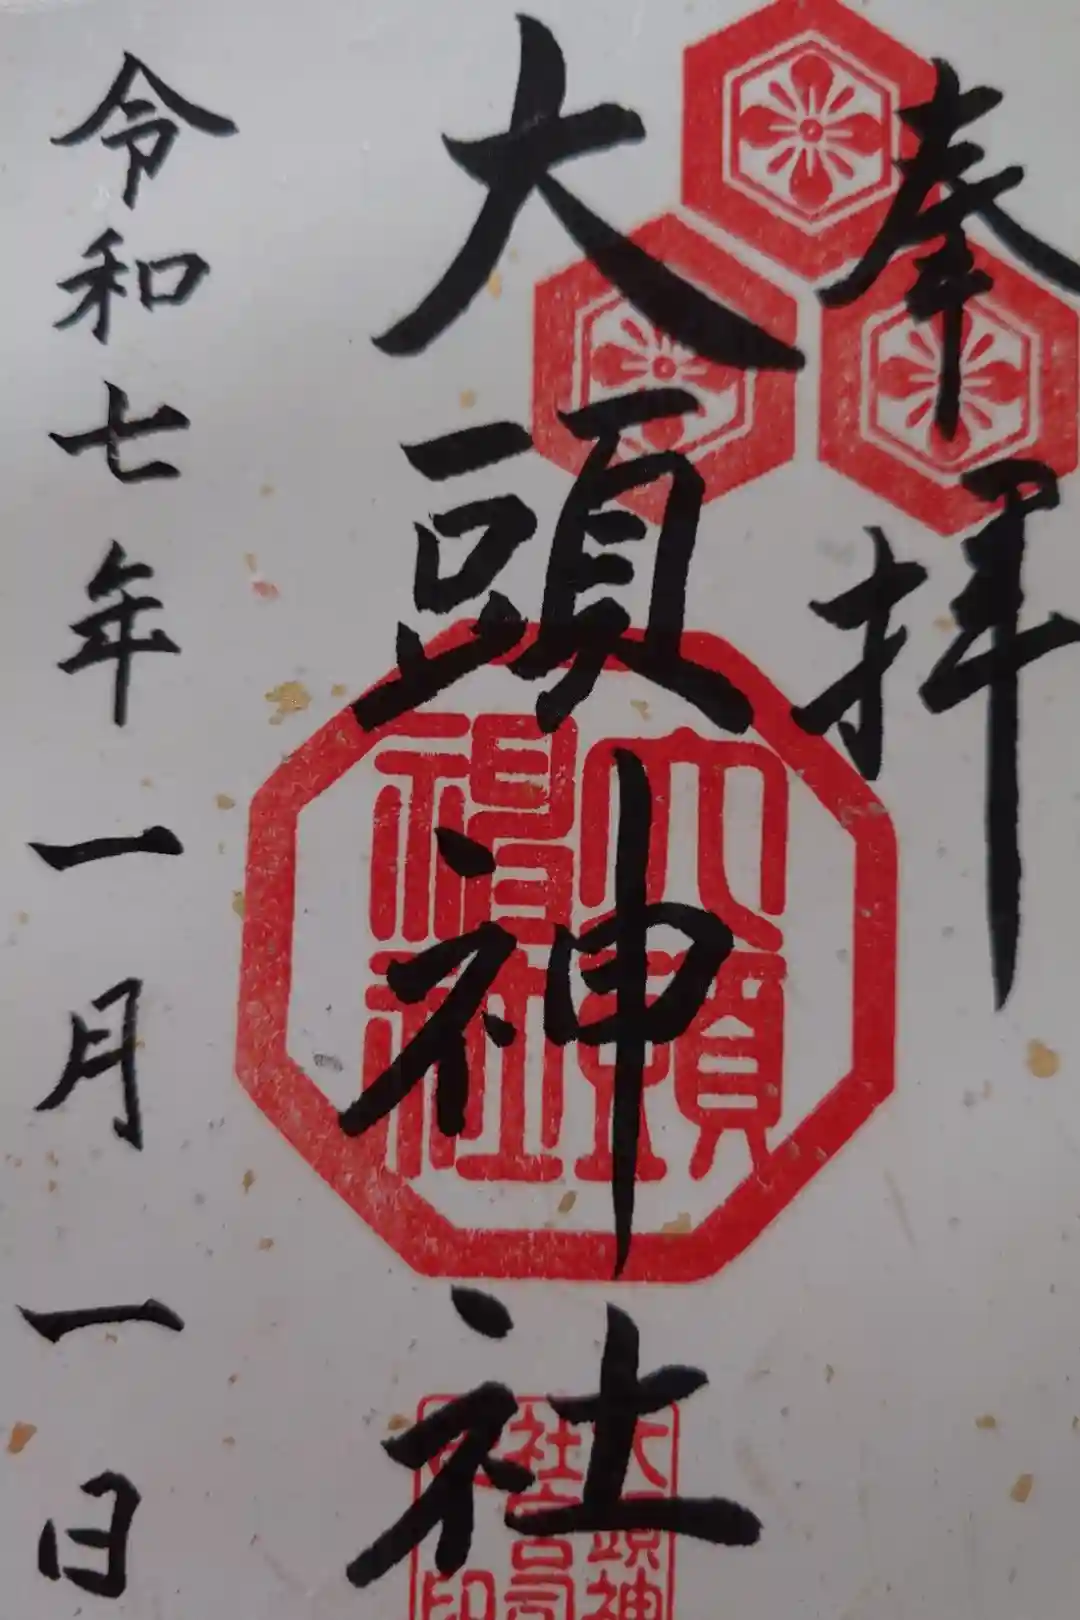 奉拝
大頭神社
令和七年一月一日
大頭神社
大頭神
社宮司
印